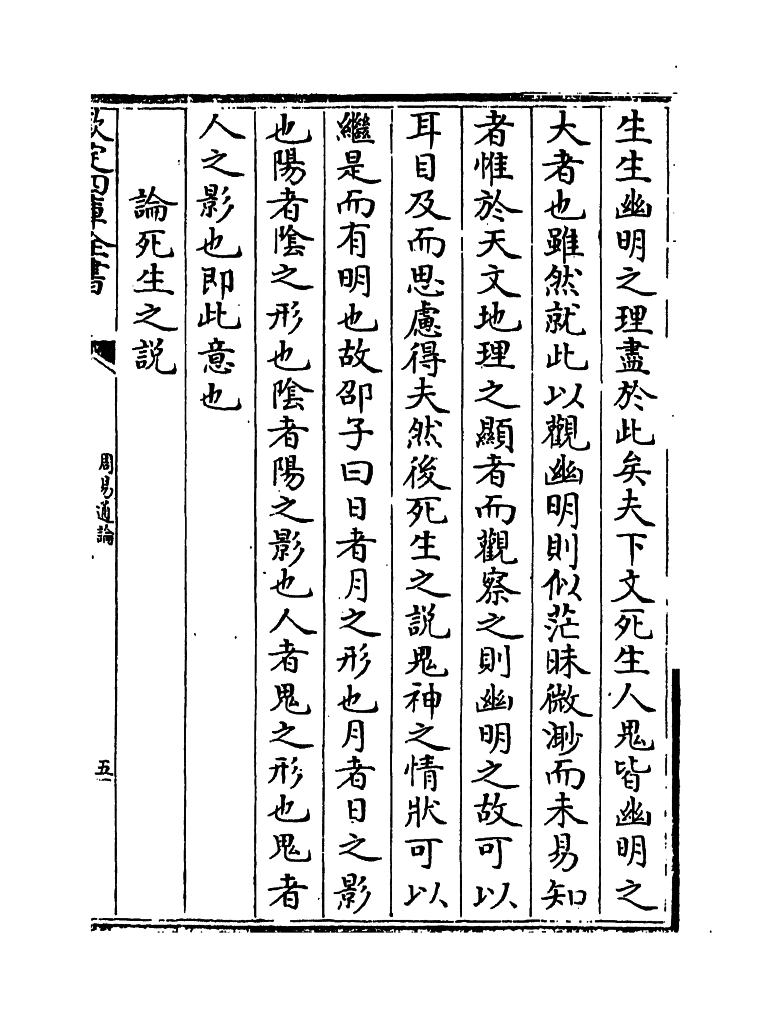 生生幽明之理盡於此矣夫下文死生人鬼皆幽明之
大者也雖然就此以觀幽明則似茫昧微渺而未易知
者惟於天文地理之顯者而觀察之則幽明之故可以
耳目及而思慮得夫然後死生之說鬼神之情狀可以
繼是而有明也故邵子曰日者月之形也月者日之影
也陽者陰之形也陰者陽之影也人者鬼之形也鬼者
人之影也即此意也
論死生之說
欽定四庫全書
周易通論
五